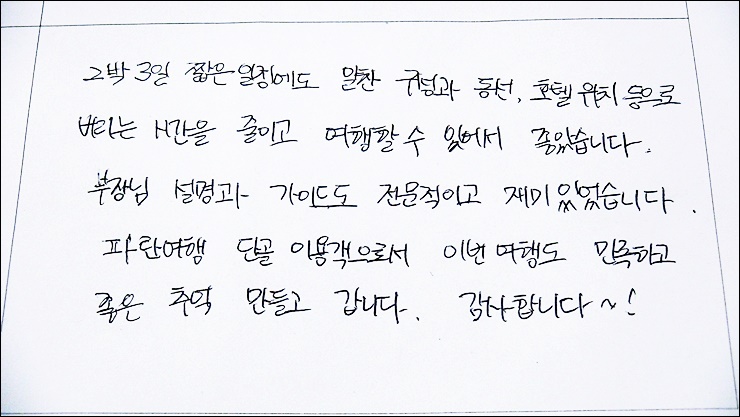 2박 3일 짧은 일정에도 알찬 구성과 동선, 호텔 위치 등으로
버리는 시간을 줄이고 여행할 수 있어서 좋았습니다.
부장님 설명과 가이드도 전문적이고 재미있었습니다.
파란여행 단골 이용객으로서 이번 여행도 만족하고
좋은 추억 만들고 갑니다. 감사합니다~!